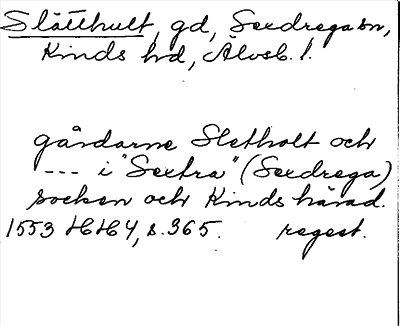 Slätthult, gd, Sexdrega sn,
Kinds hd, Älvsb. l.
gårdarne Sletholt och
--- i "Sextra" (Sexdrega)
socken och Kinds härad.
1553 HH 4, s. 365. regest.